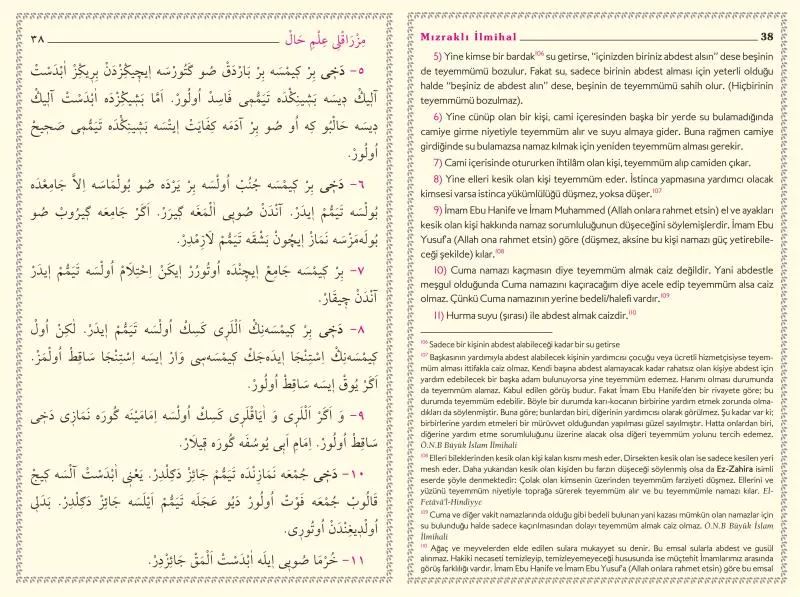 مِزْرَاقْلِى عِلْمِ حَالْ ٣٨
٥- دَخِى بِرْ كِيمْسَه بِرْ بَارْدَقْ صُو كَتُورْسَه اِيچِيكِزْدَنْ بِرِيكِزْ اٰبْدَسْتْ
آلِيكْ دِيسَه بَشِينْكْدَه تَيَمُّمِى فَاسِدْ اُولُورْ. اَمَّا بَشِيكِزْدَه اٰبْدَسْتْ آلِيكْ
دِيسَه حَالْبُو كِه اُو صُو بِرْ آدَمَه كِفَايَتْ اِيتْسَه بَشِينْكْدَه تَيَمُّمِى صَحِيحْ
اُولُورْ.
٦- دَخِى بِرْ كِيمْسَه جُنُبْ اُولْسَه بِرْ يَرْدَه صُو بُولْمَاسَه اِلاَّ جَامِعْدَه
بُولْسَه تَيَمُّمْ اِيدَرْ. آنْدَنْ صُويِى اَلْمَغَه گِيرَرْ. اَكَرْ جَامِعَه گِيرُوبْ صُو
بُولَهمَزْسَه نَمَازْ اِيچُونْ بَشْقَه تَيَمُّمْ لَازِمْدِرْ.
٧- بِرْ كِيمْسَه جَامِعْ اِيچِنْدَه اُوتُورُرْ اِيكَنْ اِحْتِلَامْ اُولْسَه تَيَمُّمْ اِيدَرْ
آنْدَنْ چِيقَارْ.
٨- دَخِى بِرْ كِيمْسَهنِكْ اَلْلَرِى كَسِكْ اُولْسَه تَيَمُّمْ اِيدَرْ. لٰكِنْ اُولْ
كِيمْسَهنِكْ اِسْتِنْجَا اِيدَهجَكْ كِيمْسَهسِى وَارْ اِيسَه اِسْتِنْجَا سَاقِطْ اُولْمَزْ.
اَكَرْ يُوقْ اِيسَه سَاقِطْ اُولُورْ.
٩- وَ اَكَرْ اَلْلَرِى وَ اَيَاقْلَرِى كَسِكْ اُولْسَه اِمَامَيْنَه كُورَه نَمَازِى دَخِى
سَاقِطْ اُولُورْ. اِمَامِ اَبِى يُوسُفَه كُورَه قِيلَارْ.
١٠- دَخِى جُمْعَه نَمَازِنْدَه تَيَمُّمْ جَائِزْ دَكِلْدِرْ. يَعْنِى اٰبْدَسْتْ آلْسَه كِيجْ
قَالُوبْ جُمْعَه فَوْتْ اُولُورْ دَيُو عَجَلَه تَيَمُّمْ اَيْلَسَه جَائِزْ دَكِلْدِرْ. بَدَلِى
اُولْدِيغِنْدَنْ اُوتُورِى.
١١- خُرْمَا صُويِى اِيلَه اٰبْدَسْتْ اَلْمَقْ جَائِزْدِرْ.
Mızraklı İlmihal 38
5) Yine kimse bir bardak106 su getirse, “içinizden biriniz abdest alsın” dese beşinin
de teyemmümü bozulur. Fakat su, sadece birinin abdest alması için yeterli olduğu
halde “beşiniz de abdest alın” dese, beşinin de teyemmümü sahih olur. (Hiçbirinin
teyemmümü bozulmaz).
6) Yine cünüp olan bir kişi, cami içerisinden başka bir yerde su bulamadığında
camiye girme niyetiyle teyemmüm alır ve suyu almaya gider. Buna rağmen camiye
girdiğinde su bulamazsa namaz kılmak için yeniden teyemmüm alması gerekir.
7) Cami içerisinde otururken ihtilâm olan kişi, teyemmüm alıp camiden çıkar.
8) Yine elleri kesik olan kişi teyemmüm eder. İstinca yapmasına yardımcı olacak
kimsesi varsa istinca yükümlülüğü düşmez, yoksa düşer.107
9) İmam Ebu Hanife ve İmam Muhammed (Allah onlara rahmet etsin) el ve ayakları
kesik olan kişi hakkında namaz sorumluluğunun düşeceğini söylemişlerdir. İmam Ebu
Yusuf’a (Allah ona rahmet etsin) göre (düşmez, aksine bu kişi namazı güç yetirebile-
ceği şekilde) kılar.108
10) Cuma namazı kaçmasın diye teyemmüm almak caiz değildir. Yani abdestle
meşgul olduğunda Cuma namazını kaçıracağım diye acele edip teyemmüm alsa caiz
olmaz. Çünkü Cuma namazının yerine bedeli/halefi vardır.109
11) Hurma suyu (şırası) ile abdest almak caizdir.110
106 Sadece bir kişinin abdest alabileceği kadar bir su getirse
107 Başkasının yardımıyla abdest alabilecek kişinin yardımcısı çocuğu veya ücretli hizmetçisiyse teyem-
müm alması ittifakla caiz olmaz. Kendi başına abdest alamayacak kadar rahatsız olan kişiye abdest için
yardım edebilecek bir başka adam bulunuyorsa yine teyemmüm edemez. Hanımı olması durumunda
da teyemmüm alamaz. Kabul edilen görüş budur. Fakat İmam Ebu Hanife’den bir rivayete göre; bu
durumda teyemmüm edebilir. Böyle bir durumda karı-kocanın birbirine yardım etmek zorunda olma-
dıkları da söylenmiştir. Buna göre; bunlardan biri, diğerinin yardımcısı olarak görülmez. Şu kadar var ki;
birbirlerine yardım etmeleri bir mürüvvet olduğundan yapılması güzel sayılmıştır. Hatta onlardan biri,
diğerine yardım etme sorumluluğunu üzerine alacak olsa diğeri teyemmüm yolunu tercih edemez.
Ö.N.B Büyük İslam İlmihali
108 Elleri bileklerinden kesik olan kişi kalan kısmı mesh eder. Dirsekten kesik olan ise sadece kesilen yeri
mesh eder. Daha yukarıdan kesik olan kişiden bu farzın düşeceği söylenmiş olsa da Ez-Zahira isimli
eserde şöyle denmektedir: Çolak olan kimsenin üzerinden teyemmüm farziyeti düşmez. Ellerini ve
yüzünü teyemmüm niyetiyle toprağa sürerek teyemmüm alır ve bu teyemmümle namaz kılar. El-
Fetâvâ’l-Hindiyye
109 Cuma ve diğer vakit namazlarında olduğu gibi bedeli bulunan yani kazası mümkün olan namazlar için
su bulunduğu halde sadece kaçırılmasından dolayı teyemmüm almak caiz olmaz. Ö.N.B Büyük İslam
İlmihali
110 Ağaç ve meyvelerden elde edilen sulara mukayyet su denir. Bu emsal sularla abdest ve gusül
alınmaz. Hakiki necaseti temizleyip, temizleyemeyeceği hususunda ise müçtehit İmamlarımız arasında
görüş farklılığı vardır. İmam Ebu Hanife ve İmam Ebu Yusuf’a (Allah onlara rahmet etsin) göre bu emsal